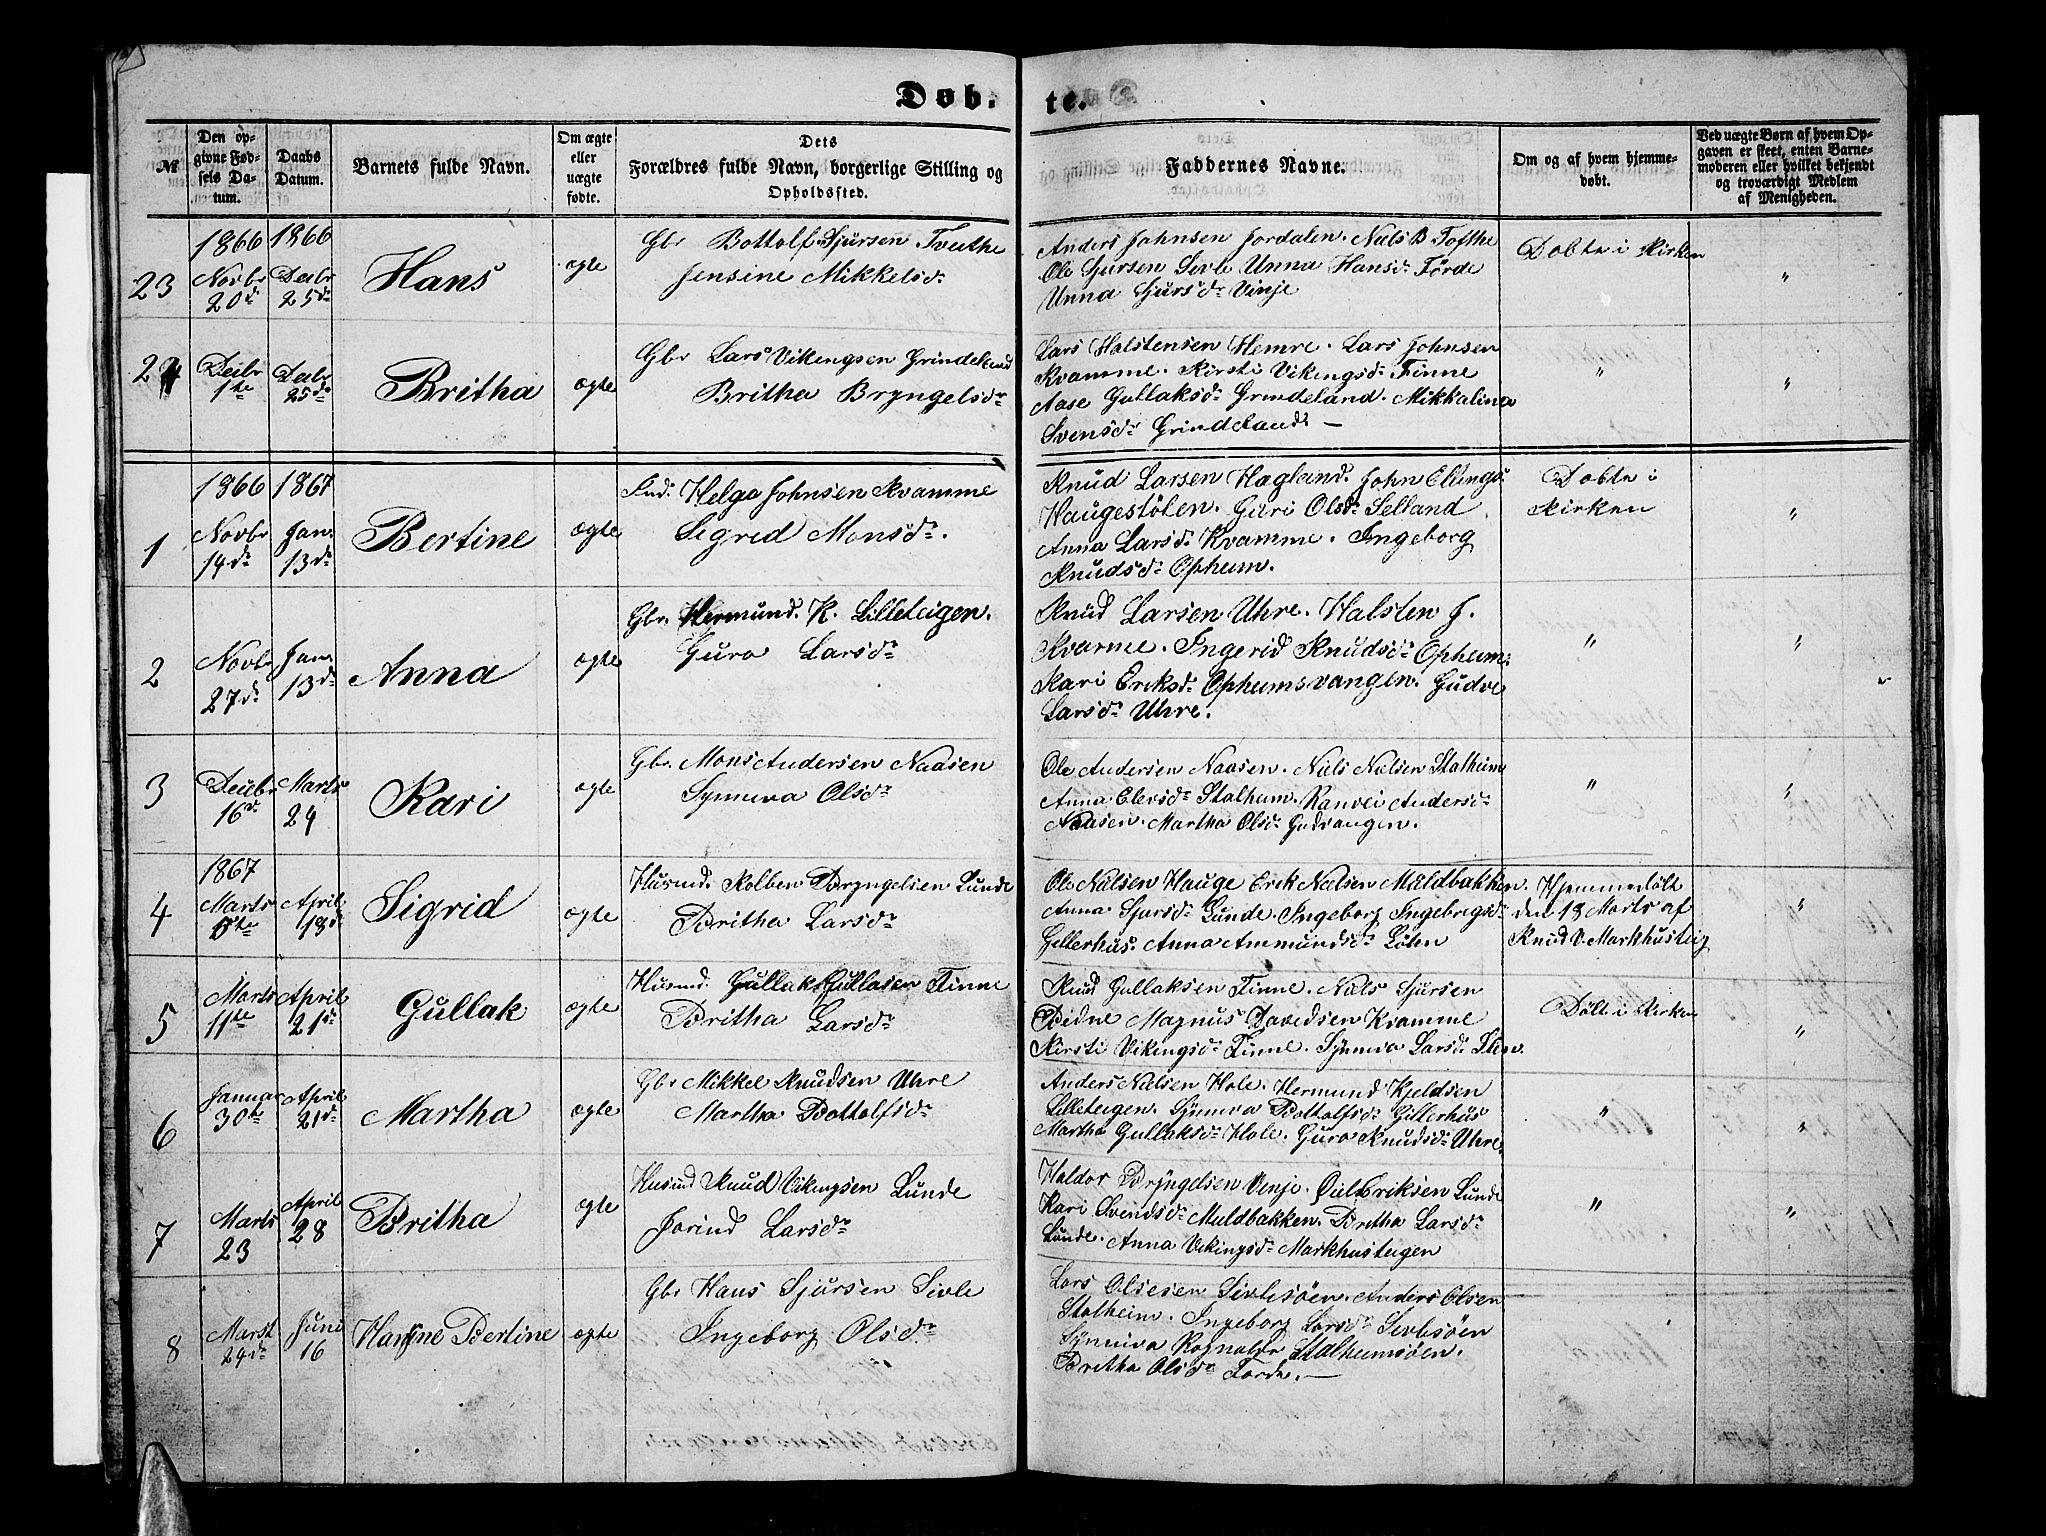 Døb. te.
№
Den op-
givne Fød-
sels Da-
tum.
Daabs
Datum.
Barnets fulde Navn.
Om ægte
eller
uægte
fødte.
Dets
Forældres fulde Navn, borgerlige Stilling og
Opholdssted.
Faddernes Navne.
Om og af hvem hjemme-
døbt.
Ved uægte Børn af hvem Op-
gaven er skeet, enten Barne-
moderen eller hvilket bekjendt
og troværdigt Medlem
af Menigheden.
23
1866
Novbr
20de
1866
Decbr
25de
Hans
ægte
Gbr Bottolf Sjursen Tvethe
Jensine Mikkelsdr
Anders Johnsen Jordalen. Niels B Tofthe
Ole Sjursen Sivle Unna Hansdr Førde
Unna Sjursdr Vinje
Døbte i Kirken
"
24
Decbr
1te
Decbr
25de
Britha
ægte
Gbr Lars Vikengsen Grindeland
Britha Bryngelsdr
Lars Halstensen Hemre. Lars Johnsen
Kvamme. Kirsti Vikingsdr Finne
Aase Gullaksdr Grindeland. Mikkalina
Svensdr Grindeland –
"
"
1
1866
Novbr
14de
1867
Jan.
13de
Bertine
ægte
Ind. Helge Johnsen Kvamme
Sigrid Monsdr.
Knud Larsen Hægland. John Ellings.
Haugestølen. Guri Olsdr Selland
Anna Larsdr Kvamme. Ingeborg
Knudsdr Opheim.
Døbte i
Kirken
"
2
Novbr
27de
Jan.
13de
Anna
ægte
Gbr. Hermund. K. Lilleteigen.
Guro Larsdr
Knud Larsen Uhre. Halsten J.
Kvarme. Ingerid Knudsdr Opheim.
Kari Eriksdr Opheimsvangen. Gudve
Larsdr Uhre.
"
"
3
Decbr
16de
Marts
24
Kari
ægte
Gbr. Mons Andersen Naasen
Synneva Olsdr
Ole Andersen Naasen. Niels Nielsen Stalheim
Anna Elevsdr Stalheim. Ranvei Andersdr
Naasen. Martha Olsdr Gudvangen.
"
"
4
1867
Marts
5te
April
18de
Sigrid
ægte
Husmd. Kolben Bryngelsen Lunde
Britha Larsdr
Ole Nielsen Hauge Erik Nielsen Muldbakken.
Anna Sjursdr Lunde. Ingeborg Ingebrigsdr
Gellerhus. Anna Ammundsdr Løhn
Hjemmedøbt
den 18 Marts af
Knud V. Markhusteig
"
5
Marts
11te
April
21de
Gullak
ægte
Husmd. Gullak Gullaksen Finne
Britha Larsdr
Knud Gullaksen Finne. Niels Sjursen
Bidne Magnus Davidsen Kvamme
Kirsti Vikengsdr Finne. Synneva Larsdr Flen.
Døbt i Kirken
"
6
Januar
30te
April
21de
Martha
ægte
Gbr Mikkel Knudsen Uhre
Martha Bottolfsdr
Anders Nielsen Hole. Hermund Kjeldsen
Lilleteigen. Synneva Bottolfsdr Gillerhus
Martha Gullaksdr Hole. Guro Knudsdr Uhre.
"
"
7
Marts
23
April
28
Britha
ægte
Husmd Knud Vikingsen Lunde
Jorind Larsdr
Haldor Bryngelsen Venje. Eriksen Lunde
Kari Svendsdr Muldbakken. Britha Larsdr
Lunde. Anna Vikingsdr Markhusteigen
"
"
8
Marst
24de
Juni
16
Hansine Bertine
ægte
Gbr Hans Sjursen Sivle
Ingeborg Olsdr
Lars Olsesen Sivlesøen. Anders Olsen
Stalheim. Ingeborg Larsdr Sivlesøen
Synneva Stalheimsøen.
Britha Olsdr Førde. –